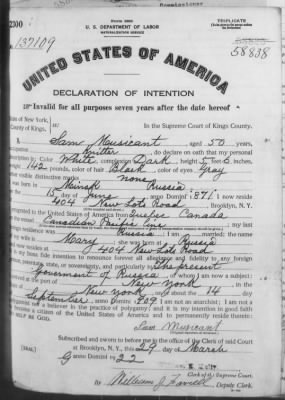 2300
Form 2203
U. S. DEPARTMENT OF LABOR
NATURALIZATION SERVICE
TRIPLICATE
No. 137109
58838
UNITED STATES OF AMERICA
DECLARATION OF INTENTION
Invalid for all purposes seven years after the date hereof
State of New York,
County of Kings,
In the Supreme Court of Kings County.
I, Sam Musicant, aged 50 years,
occupation Knitter, do declare on oath that my personal
description is: Color White, complexion Dark, height 5 feet 6 inches,
weight 142 pounds, color of hair Black, color of eyes Gray
other visible distinctive marks none
I was born in Minsk Russia
on the 15 day of June, anno Domini 1871; I now reside
at 404 New Lots Road, Brooklyn, N. Y.
I emigrated to the United States of America from Quebec Canada
on the vessel Canadian Pacific Line; my last
foreign residence was Russia; I am married; the name
of my wife is Mary; she was born at Russia
and now resides at 404 New Lots Road
It is my bona fide intention to renounce forever all allegiance and fidelity to any foreign
prince, potentate, state, or sovereignty, and particularly to The present
Government of Russia, of whom I am now a subject;
I arrived at the port of New York, in the
State of New York, on or about the 14 day
of September, anno Domini 1909; I am not an anarchist; I am not a
polygamist nor a believer in the practice of polygamy; and it is my intention in good faith
to become a citizen of the United States of America and to permanently reside therein:
SO HELP ME GOD.
Sam Musicant
Subscribed and sworn to before me in the office of the Clerk of said Court
at Brooklyn, N. Y., this 29 day of March
[SEAL.] anno Domini 1922
Clerk of the Supreme Court.
By William J., Deputy Clerk.